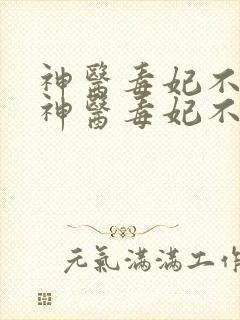 神醫毒妃不
神醫毒妃不
元氣滿滿工作